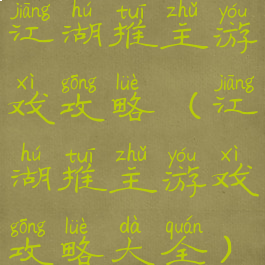 jiāng hú tuī zhǔ yóu
江湖推主游
xì gōng lüè jiāng
戏攻略（江
hú tuī zhǔ yóu xì
湖推主游戏
gōng lüè dà quán
攻略大全）